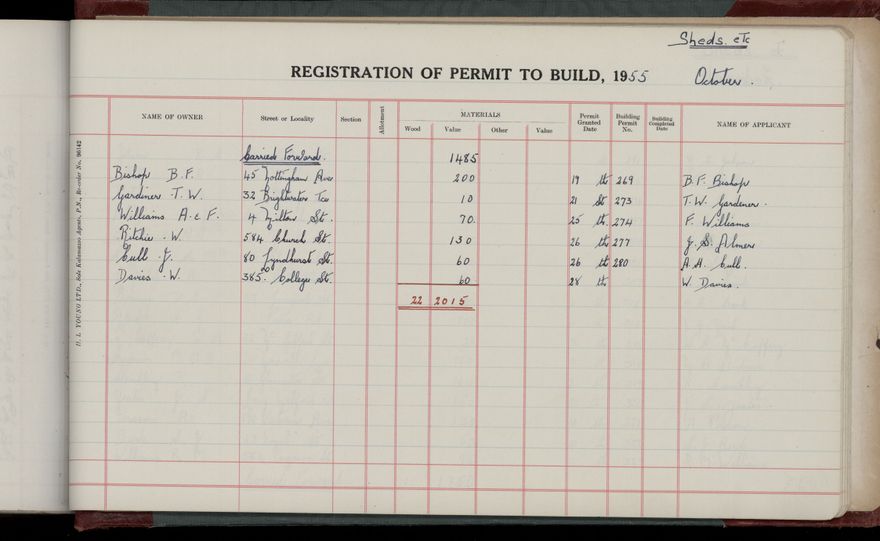 Sheds. etc
REGISTRATION OF PERMIT TO BUILD, 1955 October.
NAME OF OWNER Street or Locality Section Allotment MATERIALS Wood Value Other Value Permit Granted Date Building Permit No. Building Completed Date NAME OF APPLICANT
Carried Forward. 1485
Bishop B.F. 45 Nottingham Ave 200 19 th 269 B.F. Bishop
Gardiner T.W. 32 Brightwater Tce 10 21 st 273 T.W. Gardiner.
Williams A & F. 4 Milton St. 70. 25 th 274 F. Williams
Ritchie W. 584 Church St. 130 26 th 277 J.S.
Cull J. 80 Lyndhurst St. 60 26 th 280 A.H. Cull.
Davies W. 385 College St. 60 28 th W Davies.
22 2015
H. L. YOUNG LTD., Sole Kalamazoo Agents, P.N., Re-order No. 96142